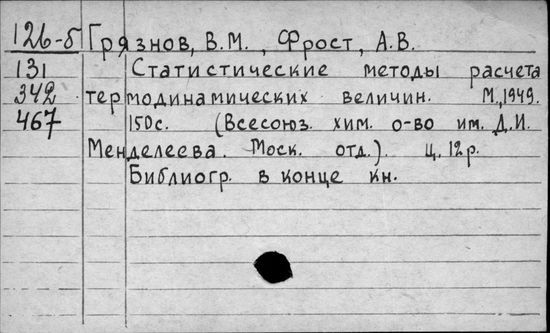 126-б Грязнов, В.М., Фрост, А.В.
131 Статистические методы расчета
342 термодинамических величин. М., 1949.
467 150с. (Всесоюз. хим. о-во им. Д.И.
Менделеева. Моск. отд.). Ц. 12р.
Библиогр. в конце кн.